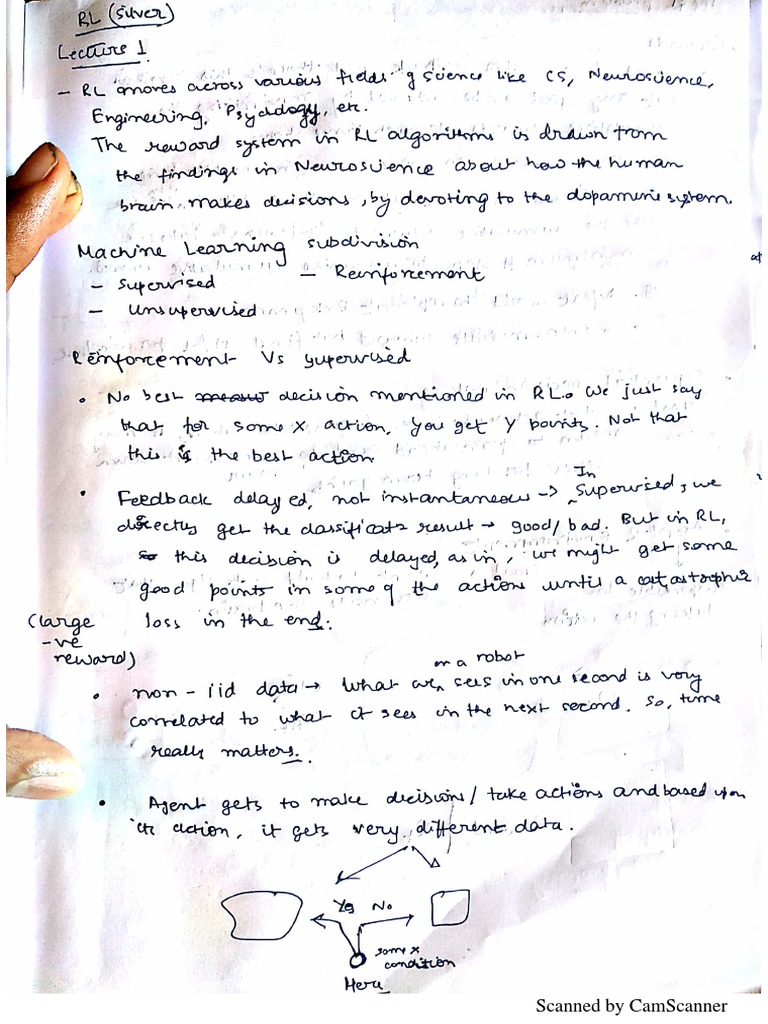 RL (Silver)
Lecture 1
- RL moves across various fields of science like CS, Neuroscience,
Engineering, Psychology, etc.
The reward system in RL algorithms is drawn from
the findings in Neuroscience about how the human
brain makes decisions, by devoting to the dopamine system.
Machine Learning subdivision
- Supervised - Reinforcement
- Unsupervised
Reinforcement Vs Supervised
• No best decision mentioned in RL. We just say
that, for some X action, you get Y points. Not that
this is the best action.
• Feedback delayed, not instantaneous -> In Supervised, we
directly get the result → good/bad. But in RL,
this decision is delayed, as in, we might get some
good points in some of the actions until a catastrophic
loss in the end.
(large
-ve
reward)
• non-iid data → What we or a robot sees in one second is very
correlated to what it sees in the next second. So, time
really matters.
• Agent gets to make decision/take actions and based upon
action, it gets very different data.
Yes No
some X
condition
Here
Scanned by CamScanner